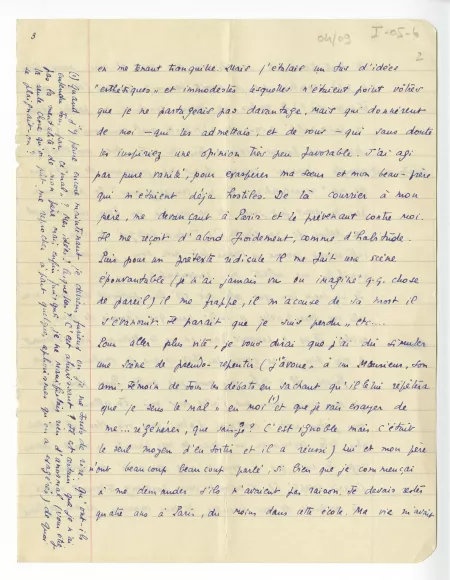 3
04/09
I-05-6
2
en me tenant tranquille. Mais j'étalais un tas d'idées
"esthétiques" et immodestes lesquelles n'étaient point vôtres
que je ne partageais pas davantage, mais qui donnèrent
de moi — qui les admettais, et de vous — qui sans doute
les inspiriez une opinion très peu favorable. J'ai agi
par pure vanité, pour exaspérer ma sœur et mon beau-frère
qui m'étaient déjà hostiles. De là courrier à mon
père, me devançant à Paris et le prévenant contre moi.
Il me reçoit d'abord froidement, comme d'habitude.
Puis pour un prétexte ridicule il me fait une scène
épouvantable (je n'ai jamais vu ou imaginé q.q. chose
de pareil) il me frappe, il m'accuse de sa mort il
s'évanouit. Il paraît que je suis "perdu", etc...
Pour aller plus vite, je vous dirai que j'ai dû simuler
une scène de pseudo-repentir (j'"avoue" à un Monsieur, son
ami, témoin de tous les débats en sachant qu'il le lui répétera
que je sens le "mal" en moi (1) et que je vais essayer de
me... régénérer, que sais-je? C'est ignoble mais c'était
le seul moyen d'en sortir et il a réussi) Lui et mon père
m'ont beaucoup beaucoup parlé, si bien que je commençai
à me demander s'ils n'avaient pas raison. Je devais rester
quatre ans à Paris, du moins dans cette école. Ma vie m'avait
(1) Quand j'y pense encore maintenant je deviens furieux ou je me tords de rire. Qu'ont-ils
entendu par ce "mal"? Mes idées? Lesquelles? C'est ahurissant! Il est certain que je n'ai
pas la mentalité de mon père mais enfin puisque je ne manifestais rien d'anormal (peut-être
la seule chose qu'on pût me reprocher à part quelques aphorismes qu'on a exagérés) de quoi
se plaignait-on?